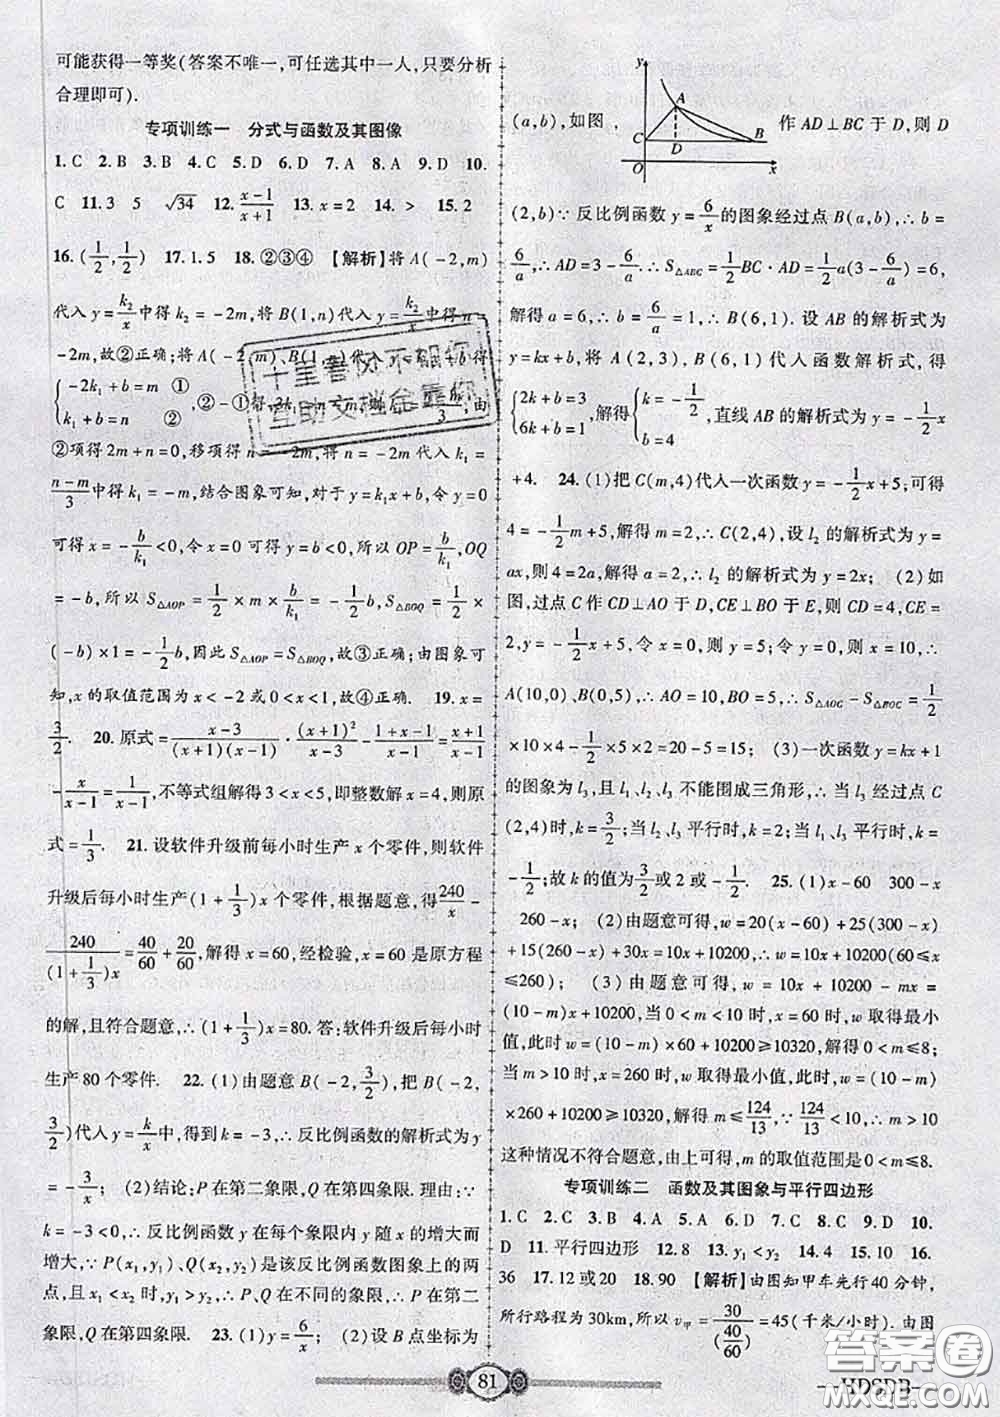 可能获得一等奖(答案不唯一,可任选其中一人,只要分析
合理即可).
专项训练一 分式与函数及其图像
1. C 2. B 3. B 4. C 5. D 6. D 7. A 8. A 9. D 10.
C 11. 3 5 √34 12. (x-1)/(x+1) 13. x=2 14. > 15. 2
16. (1/2, 1/2) 17. 1.5 18. ②③④ 【解析】将A(-2,m)
代入y=k₂/x中得k₂=-2m,将B(1,n)代入y=k₂/x中得n=
-2m,故②正确;将A(-2,m)、B(1,n)代入 +b得
{-2k₁+b=m ① k₁+b=n ② ,②-①得 /3,由
②项得2m+n=0,移项得n=-2m,将n=-2m代入k₁=
(n-m)/3中得k₁=-m,结合图象可知,对于y=k₁x+b,令y=0
可得x=-b/k₁<0,令x=0可得y=b<0,所以OP=b/k₁,OQ
=-b,所以S△AOP=1/2×m×b/k₁=-1/2b,S△BOQ=1/2×
(-b)×1=-1/2b,因此S△AOP=S△BOQ,故③正确;由图象可
知,x的取值范围为x<-2或0<x<1,故④正确. 19. x=
3/2. 20. 原式=(x-3)/((x+1)(x-1))·(x+1)²/(x-3)-(1+x-1)/(x-1)=(x+1)/(x-1)
-x/(x-1)=1/(x-1),不等式组解得3<x<5,即整数解x=4,则原
式=1/3. 21. 设软件升级前每小时生产x个零件,则软件
升级后每小时生产(1+1/3)x个零件,根据题意,得240/x-
240/((1+1/3)x)=40/60+20/60,解得x=60,经检验,x=60是原方程
的解,且符合题意,∴(1+1/3)x=80.答:软件升级后每小时
生产80个零件. 22. (1)由题意B(-2,3/2),把B(-2,
3/2)代入y=k/x中,得到k=-3,∴反比例函数的解析式为y
=-3/x; (2)结论:P在第二象限,Q在第四象限.理由:∵
k=-3<0,∴反比例函数y在每个象限内y随x的增大而
增大,∵P(x₁,y₁)、Q(x₂,y₂)是该反比例函数图象上的两
点,且x₁<x₂时,y₁>y₂,∴P、Q在不同的象限,∴P在第二
象限,Q在第四象限. 23. (1)y=6/x; (2)设B点坐标为
(a,b),如图, 作AD⊥BC于D,则D
y
A
C
B
D
O
x
(2,b)∵反比例函数y=6/x的图象经过点B(a,b),∴b=
6/a,∴AD=3-6/a.∴S△ABC=1/2BC·AD=1/2a(3-6/a)=6,
解得a=6,∴b=6/a=1,∴B(6,1).设AB的解析式为
y=kx+b,将A(2,3),B(6,1)代入函数解析式,得
{2k+b=3 6k+b=1 ,解得{k=-1/2 b=4 ,直线AB的解析式为y=-1/2x
+4. 24. (1)把C(m,4)代入一次函数y=-1/2x+5;可得
4=-1/2m+5,解得m=2,∴C(2,4),设l₂的解析式为y=
ax,则4=2a,解得a=2,∴l₂的解析式为y=2x; (2)如
图,过点C作CD⊥AO于D,CE⊥BO于E,则CD=4,CE=
2,y=-1/2x+5,令x=0,则y=5;令y=0,则x=10,∴
A(10,0),B(0,5),∴AO=10,BO=5,∴S△AOC-S△BOC=1/2
×10×4-1/2×5×2=20-5=15; (3)一次函数y=kx+1
的图象为l₃,且l₁、l₂、l₃不能围成三角形,∴当l₃经过点C
(2,4)时,k=3/2;当l₂、l₃平行时,k=2;当l₁、l₃平行时,k=
-1/2;故k的值为3/2或2或-1/2. 25. (1)x-60 300-x
260-x; (2)由题意可得,w=20(x-60)+25(300-x)
+15(260-x)+30x=10x+10200,∴w=10x+10200(60≤x
≤260); (3)由题意可得,w=10x+10200-mx=
(10-m)x+10200,当0<m<10时,x=60时,w取得最小
值,此时,w=(10-m)×60+10200≥10320,解得0<m≤8;
当m>10时,x=260时,w取得最小值,此时,w=(10-m)
×260+10200≥10320,解得m≤124/13,∵124/13<10,∴m>10
这种情况不符合题意,由上可得,m的取值范围是0<m≤8.
专项训练二 函数及其图象与平行四边形
1. C 2. C 3. B 4. A 5. A 6. D 7. C 8. C 9. D 10.
D 11. 平行四边形 12. 8 13. y₁<y₂ 14. 4 15. 10 16.
36 17. 12或20 18. 90 【解析】由图知甲车先行40分钟,
所行路程为30km,所以v甲=30/(40/60)=45(千米/小时).由图
81
HDSDB
答案圈